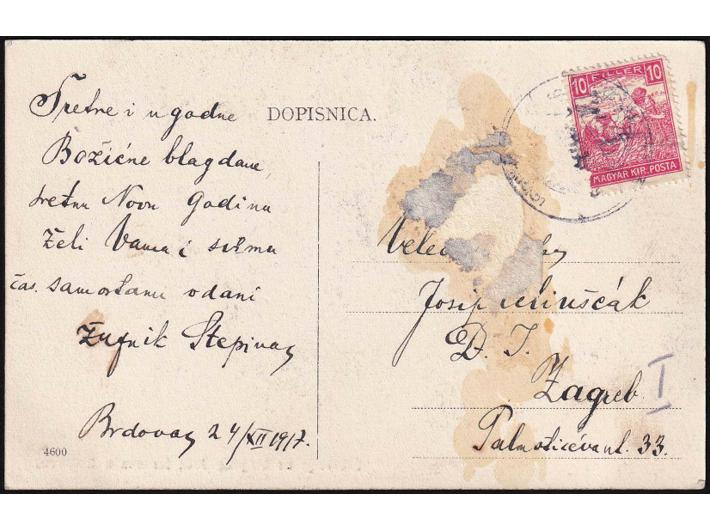 DOPISNICA.
Sretne i ugodne
Božićne blagdane,
sretnu Novu Godinu
želi Vama i svima
čas. samostanu odani
Župnik Stepinac
Brdovac 24/XII 1917.
4600
10 FILLER 10
MAGYAR KIR. POSTA
Josip
D. I.
Zagreb
I
Palmotićeva ul. 33.